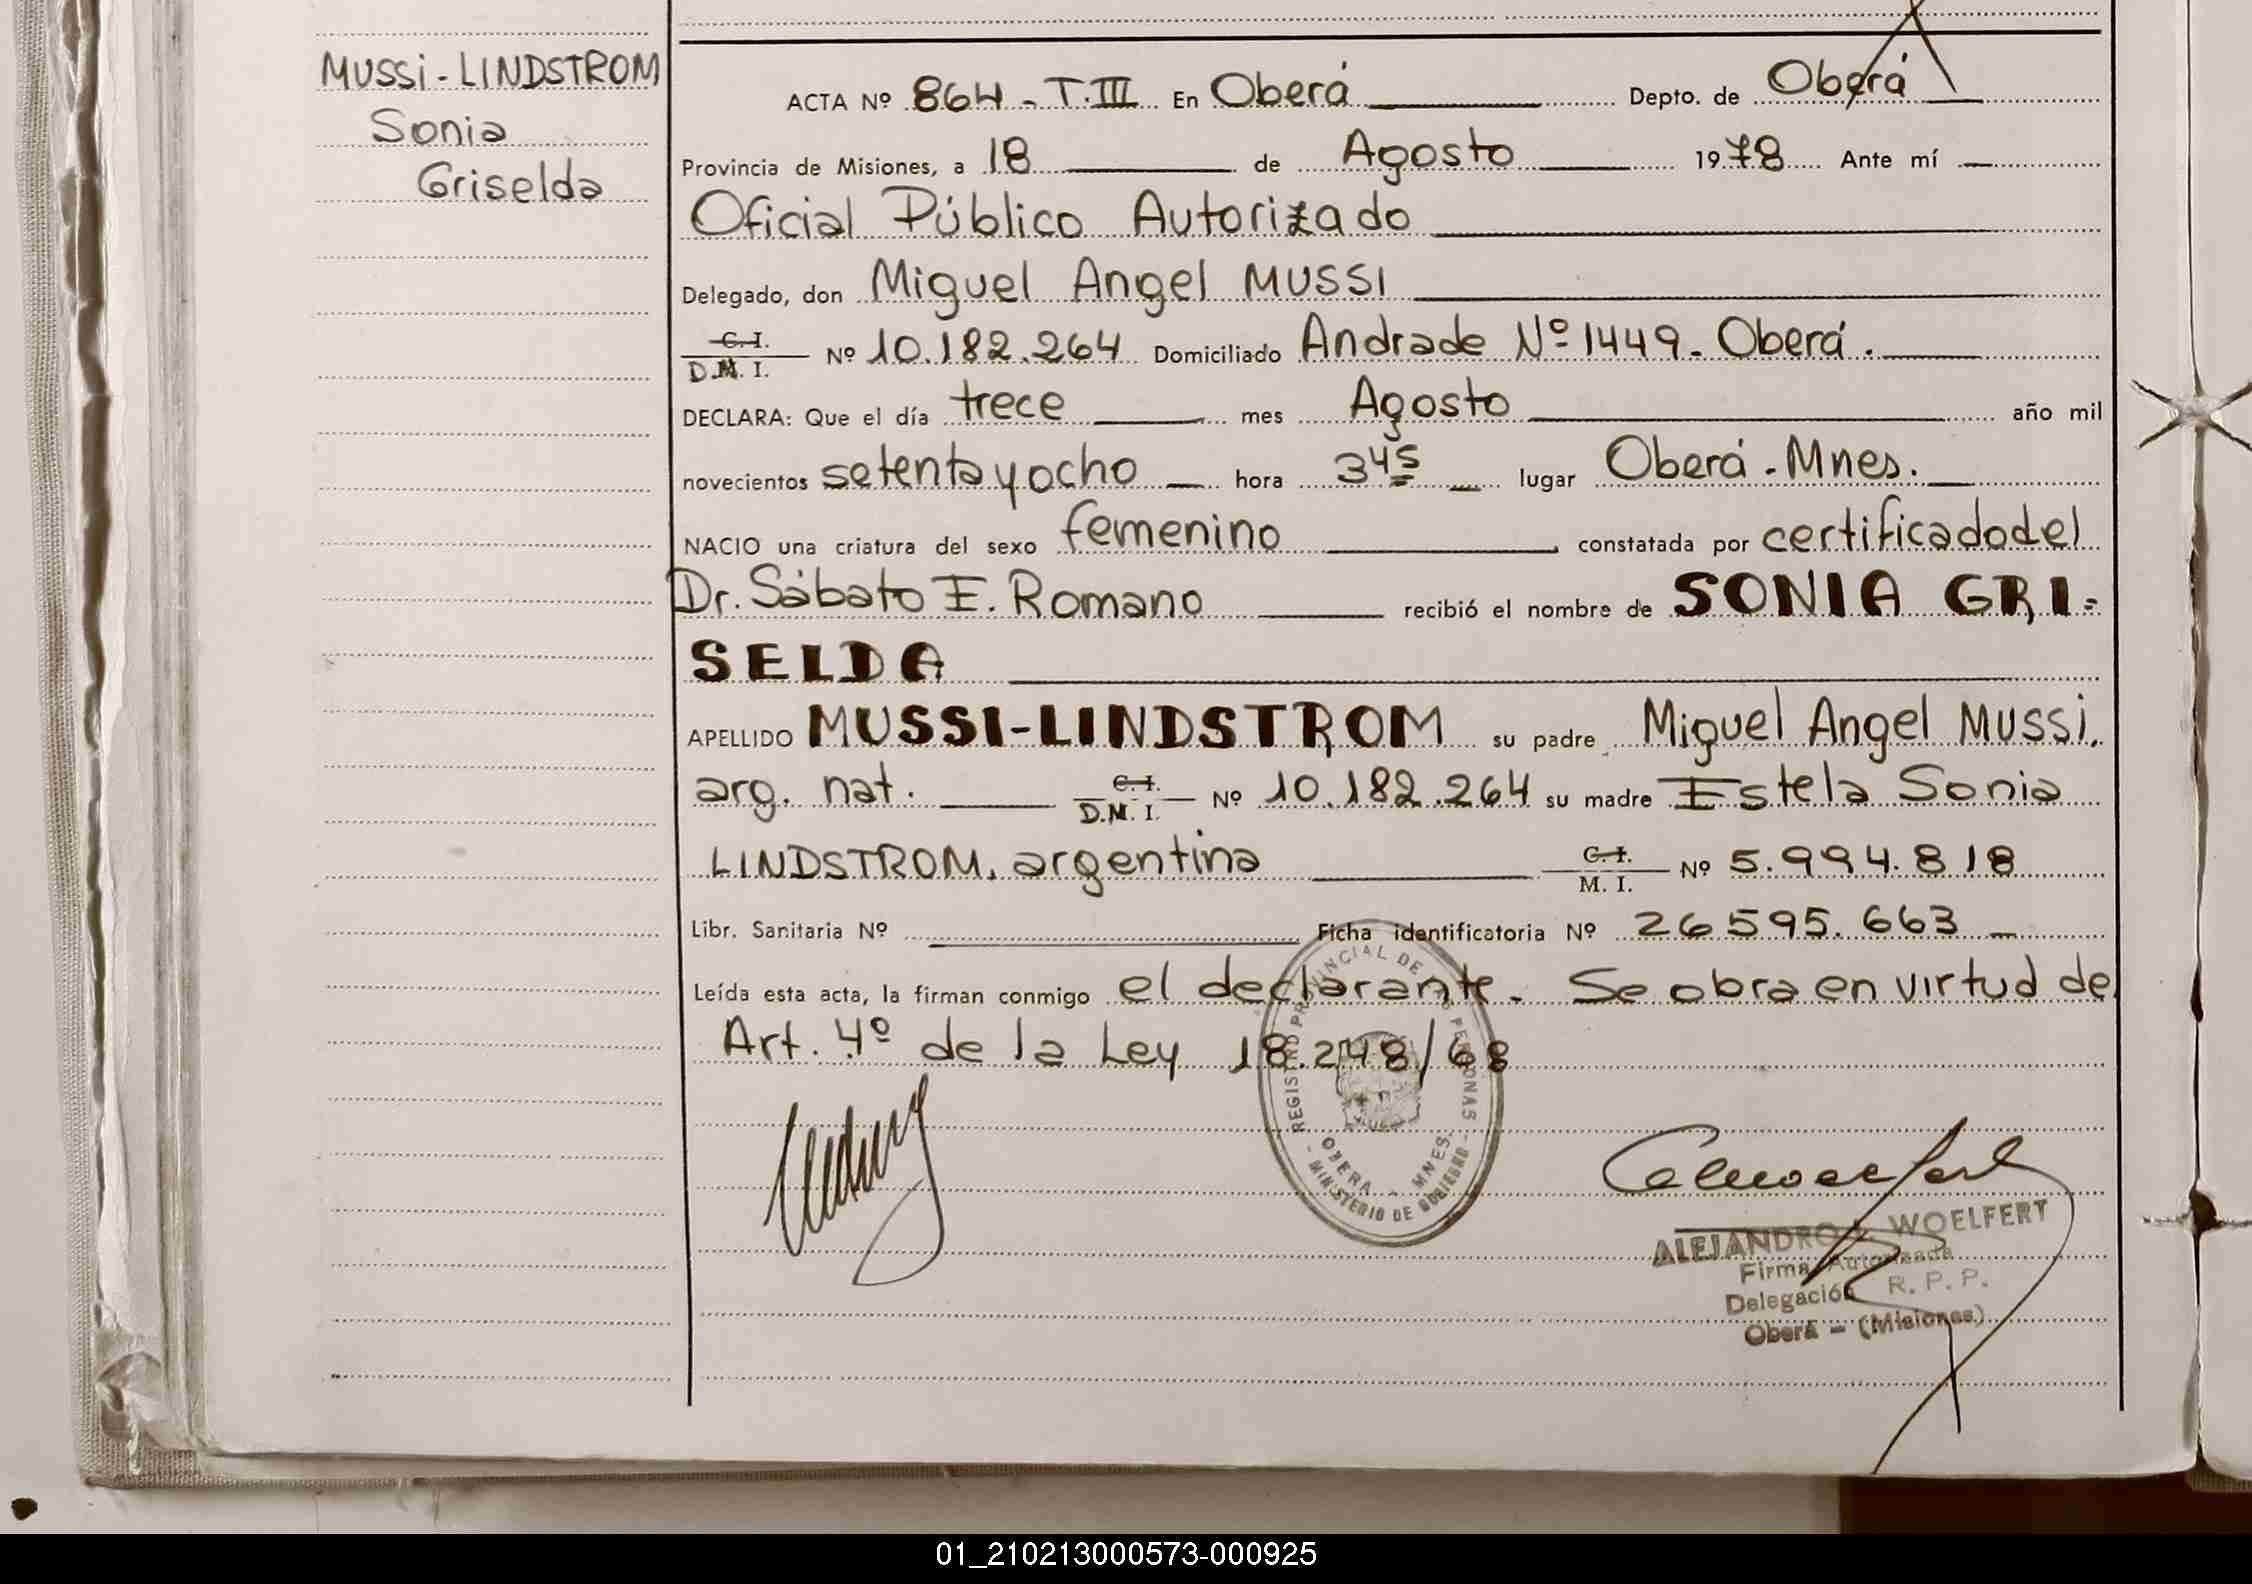 MUSSi - LINDSTROM
Sonia
Griselda
ACTA Nº 864 - T. III En Oberá Depto. de Oberá
Provincia de Misiones, a 18 de Agosto 1978 Ante mí
Oficial Público Autorizado
Delegado, don Miguel Angel MUSSI
C. I.
D.M. I. Nº 10.182.264 Domiciliado Andrade Nº 1449 - Oberá.
DECLARA: Que el día trece mes Agosto año mil
novecientos setenta y ocho hora 3 45 lugar Oberá - Mnes.
NACIO una criatura del sexo femenino constatada por certificado del
Dr. Sábato E. Romano recibió el nombre de SONIA GRI=
SELDA
APELLIDO MUSSI-LINDSTROM su padre Miguel Angel MUSSi.
arg. nat. C. I. D.M. I. Nº 10.182.264 su madre Estela Sonia
LINDSTROM, argentina C. I. M. I. Nº 5.994.818
Libr. Sanitaria Nº Ficha identificatoria Nº 26595.663
Leída esta acta, la firman conmigo el declarante. Se obra en virtud de
Art. 4º de la Ley 18.248/68
REGISTRO PROVINCIAL DE PERSONAS
OBERA - MNES.
- MINISTERIO DE GOBIERNO -
ALEJANDRO WOELFERT
Firma Autorizada
Delegación R. P. P.
Oberá - (Misiones)
01_210213000573-000925